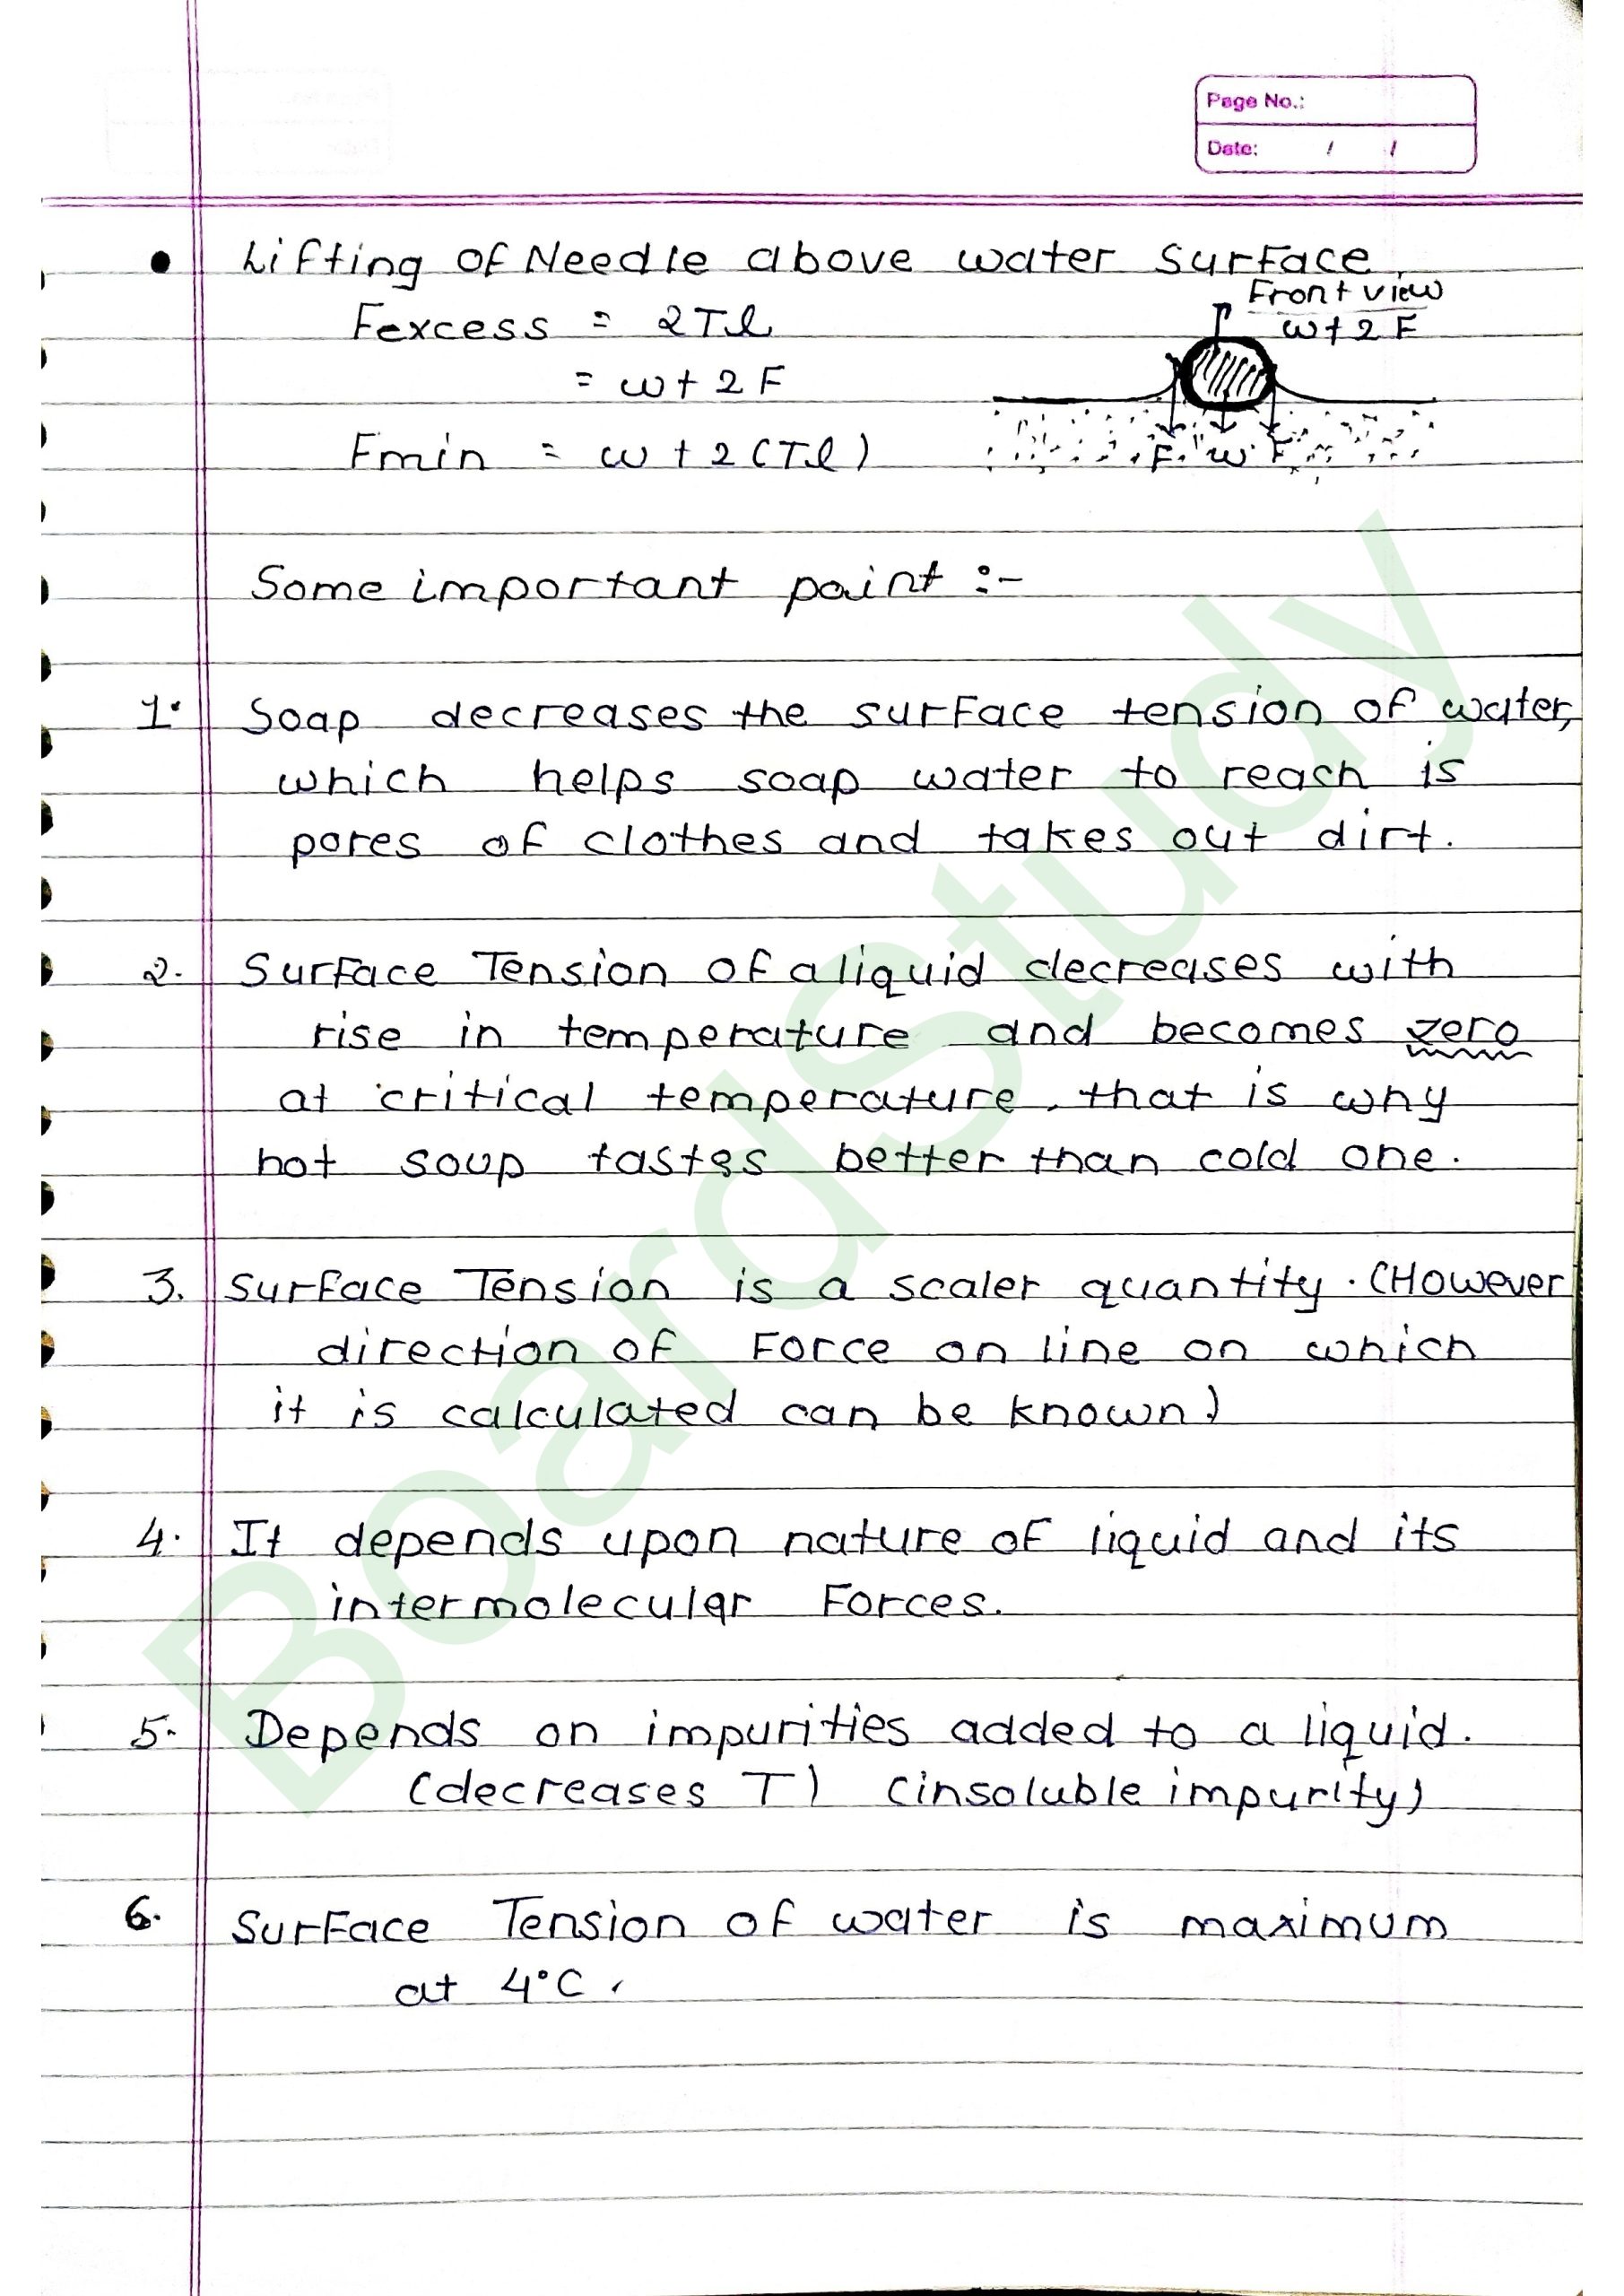 Page No.:
Date: / /
• Lifting of Needle above water surface.
Front view
Fexcess = 2Tl
w+2F
= w+2F
Fmin = w+2(Tl)
F w F
Some important point :-
1. Soap decreases the surface tension of water,
which helps soap water to reach is
pores of clothes and takes out dirt.
2. Surface Tension of a liquid decreases with
rise in temperature and becomes zero
at critical temperature, that is why
hot soup tastes better than cold one.
3. Surface Tension is a scaler quantity. (However
direction of Force on line on which
it is calculated can be known)
4. It depends upon nature of liquid and its
intermolecular Forces.
5. Depends on impurities added to a liquid.
(decreases T) (insoluble impurity)
6. Surface Tension of water is maximum
at 4°C.
BoardStudy